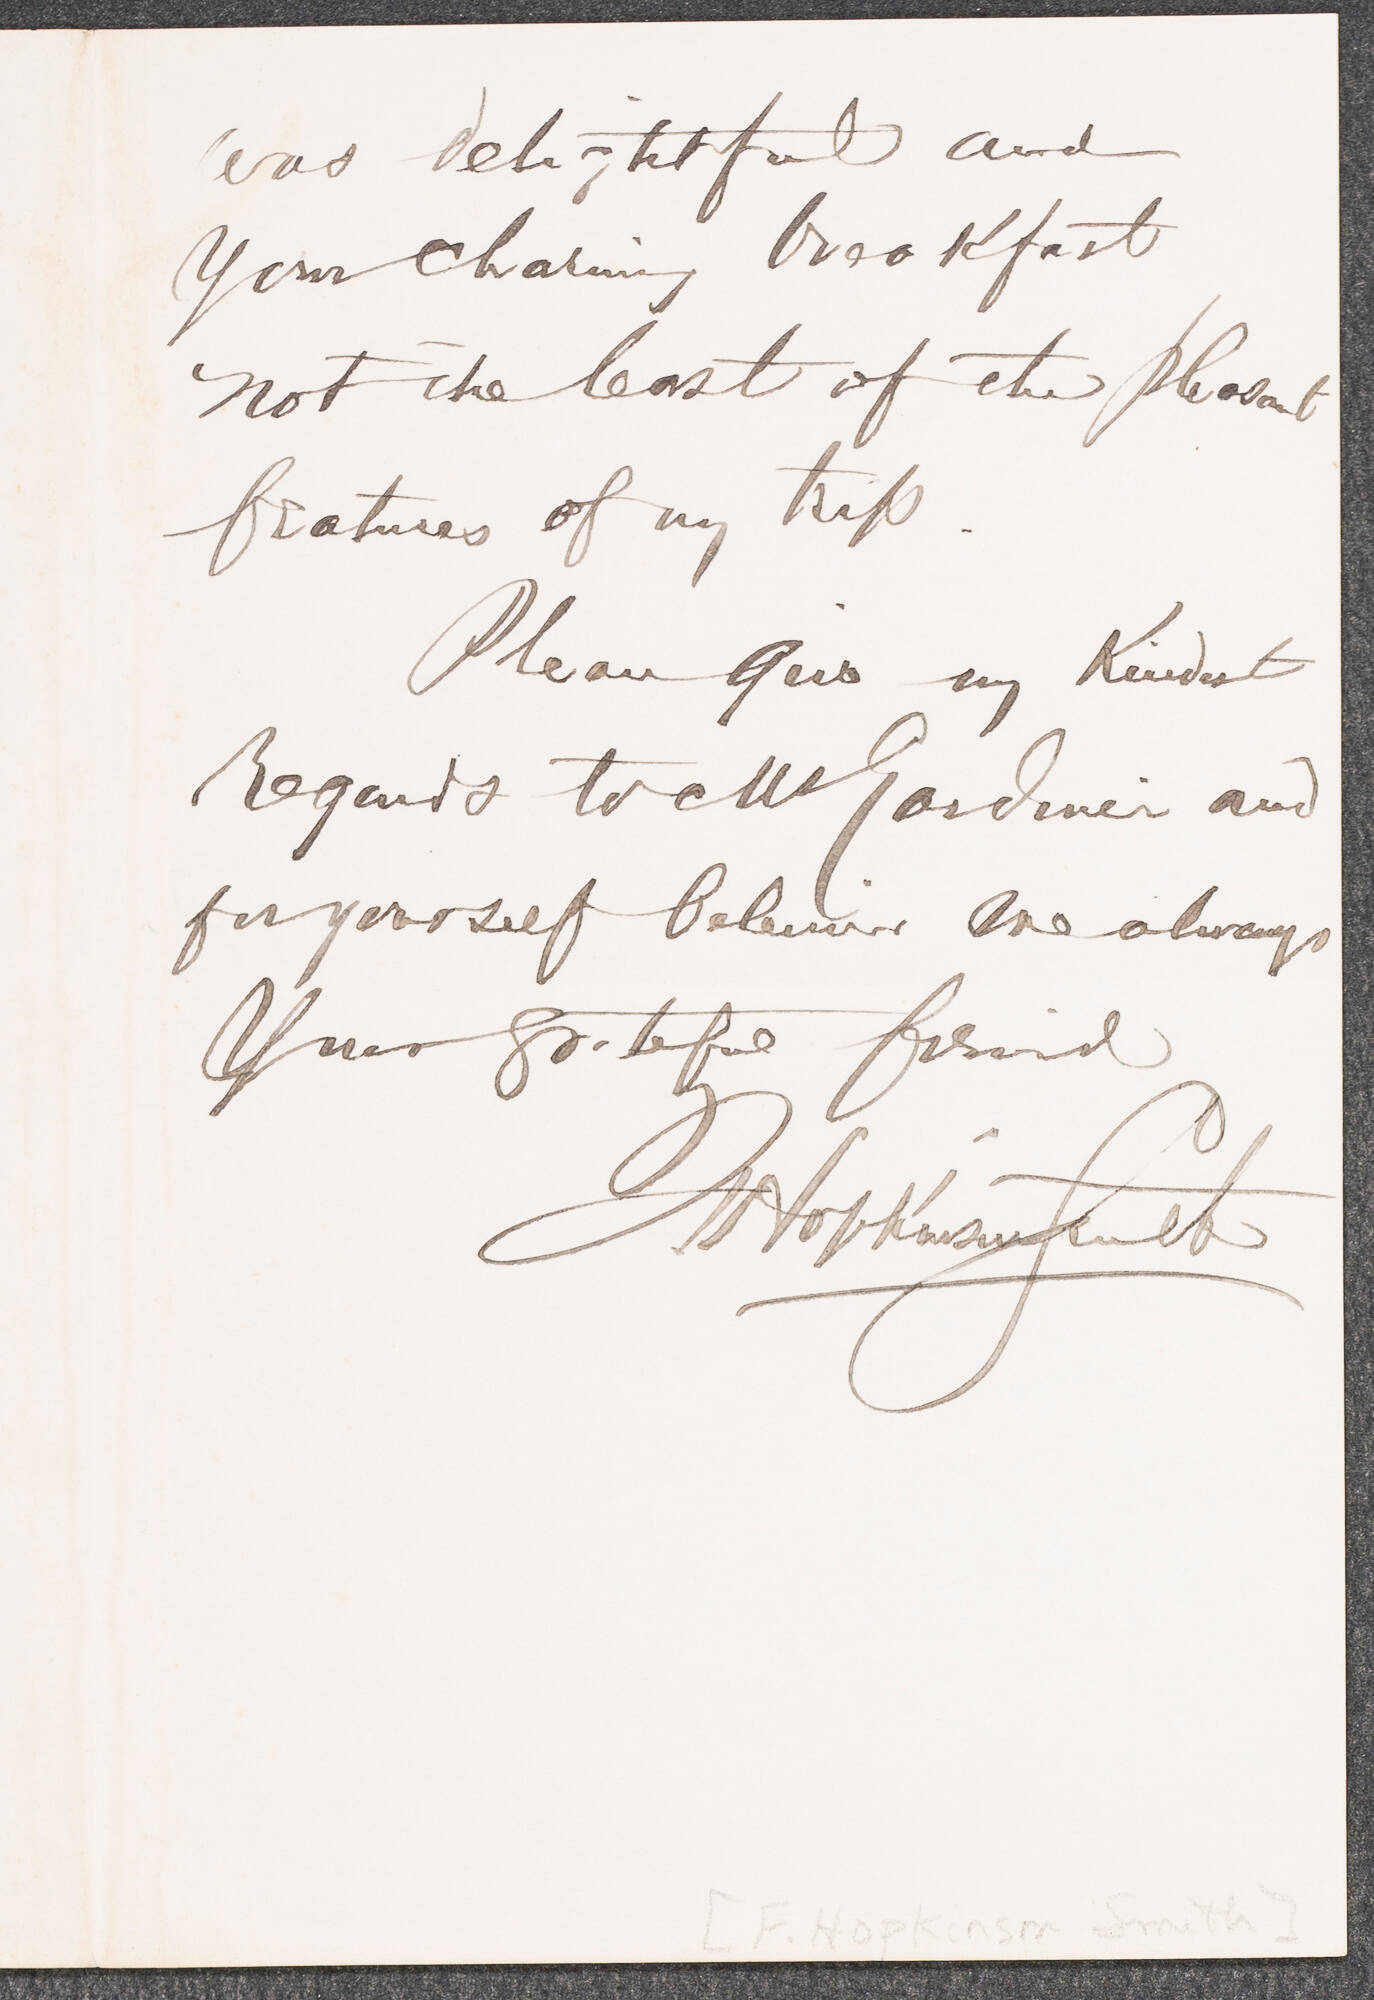 was delightful and
your charming breakfast
not the least of the pleasant
features of my trip.
Please give my kindest
Regards to Mr Gardner and
for yourself believe me always
Your grateful friend
F Hopkinson Smith
[F. Hopkinson Smith]